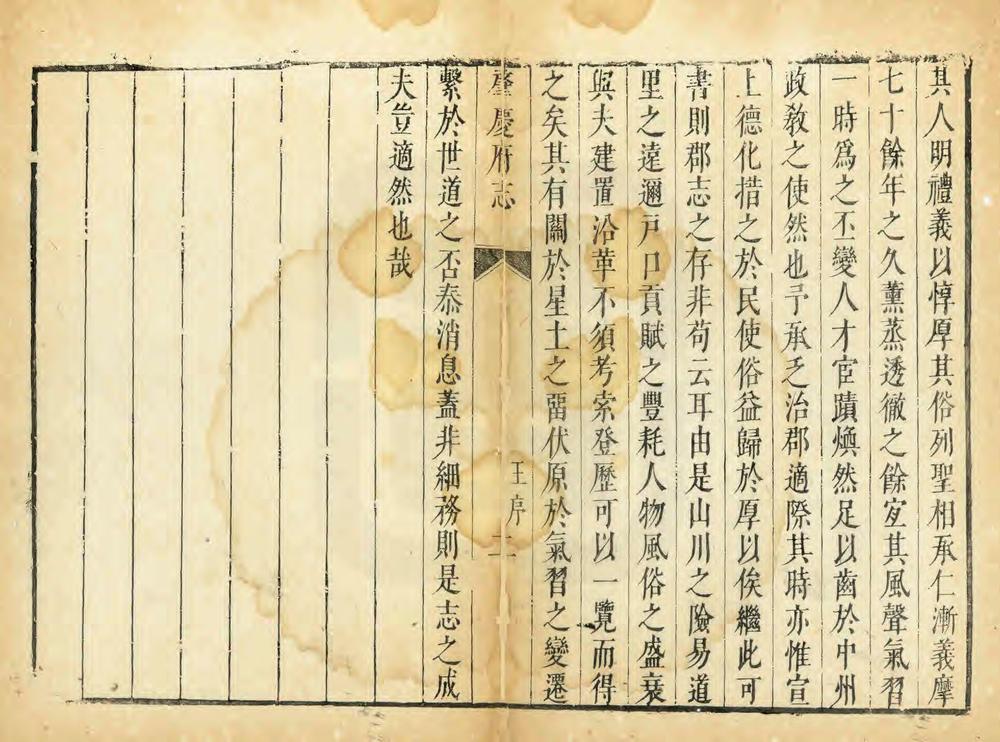 其人明禮義以惇厚其俗列聖相承仁漸義摩
七十餘年之久薰蒸透徹之餘宜其風聲氣習
一時爲之丕變人才宦蹟煥然足以齒於中州
政敎之使然也予承乏治郡適際其時亦惟宣
上德化措之於民使俗益歸於厚以俟繼此可
書則郡志之存非苟云耳由是山川之險易道
里之遠邇戸口貢賦之豐耗人物風俗之盛衰
與夫建置沿革不須考索登歷可以一覽而得
之矣其有關於星土之畱伏原於氣習之變遷
肇慶府志
王序
二
繫於世道之否泰消息蓋非細務則是志之成
夫豈適然也哉